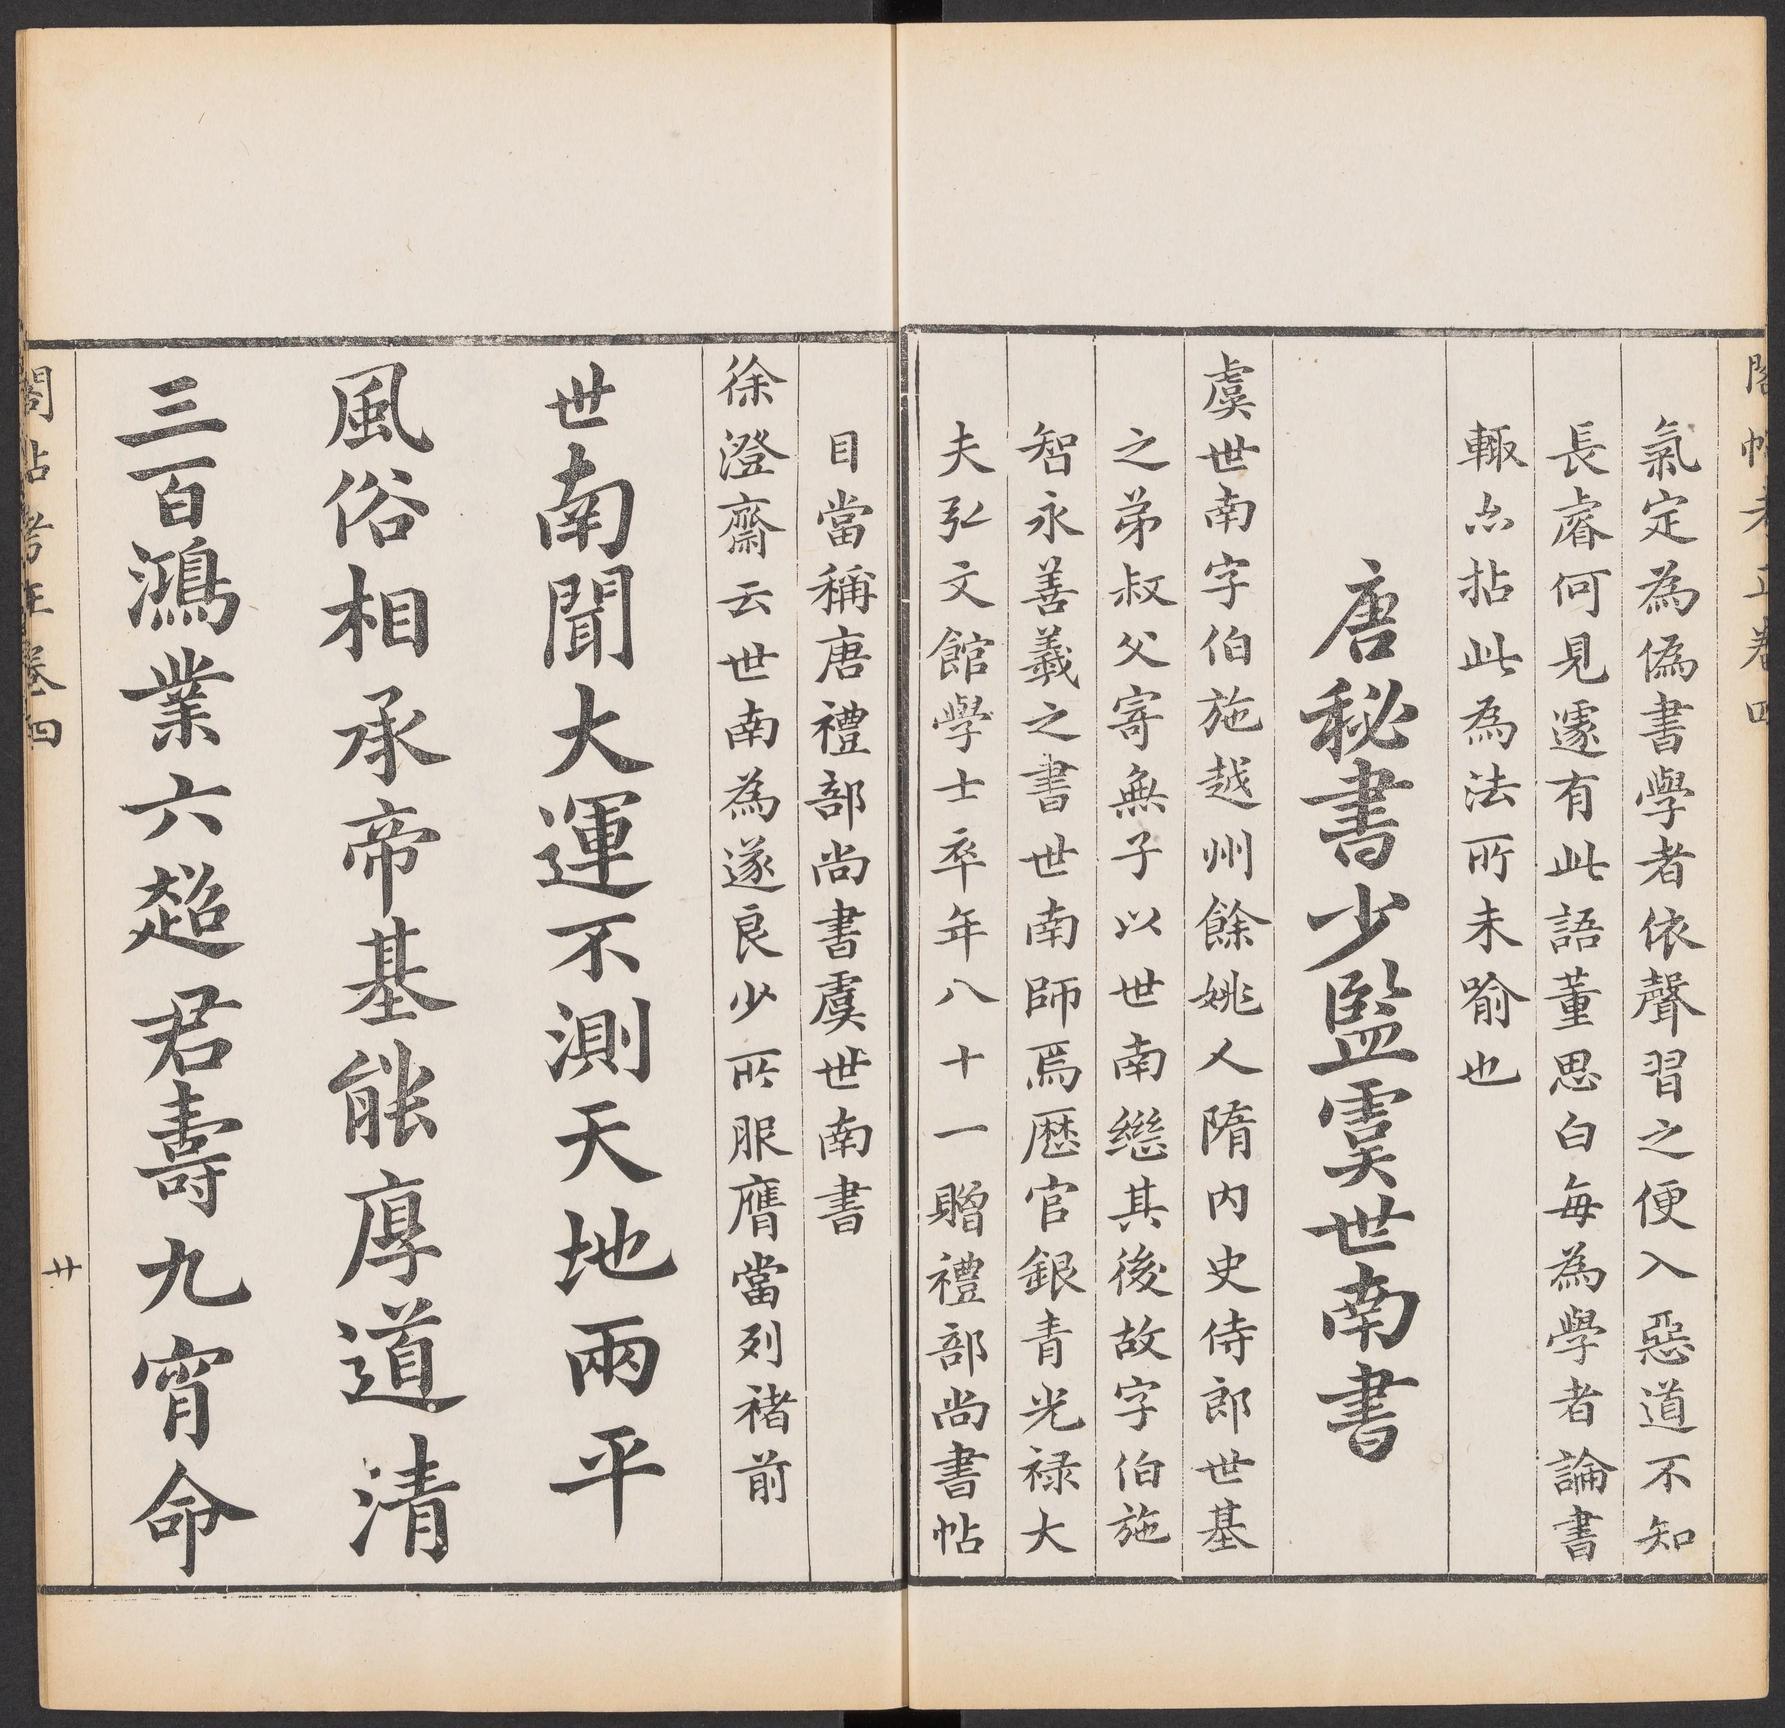 閣帖考正卷四
氣定為偽書學者依聲習之便入惡道不知
長睿何見遽有此語董思白每為學者論書
輙亦拈此為法所未喻也
唐秘書少監虞世南書
虞世南字伯施越州餘姚人隋内史侍郎世基
之弟叔父寄無子以世南繼其後故字伯施
智永善羲之書世南師焉歷官銀青光禄大
夫弘文館學士卒年八十一贈禮部尚書帖
目當稱唐禮部尚書虞世南書
徐澄齋云世南為遂良少所服膺當列褚前
世南聞大運不測天地兩平
風俗相承帝基能厚道清
三百鴻業六超君壽九宵命
閣帖考正卷四
廿